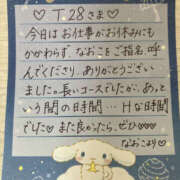 ♡ T.28さま ♡
今日はお仕事がお休みにも
かかわらず、なおこをご指名 呼
んでくださり、ありがとうござい
ました。長いコースでしたが、あっと
いう間の時間…Hな時間
でした♡ また良かったら、ぜひ♡♡♡
なおこより♡